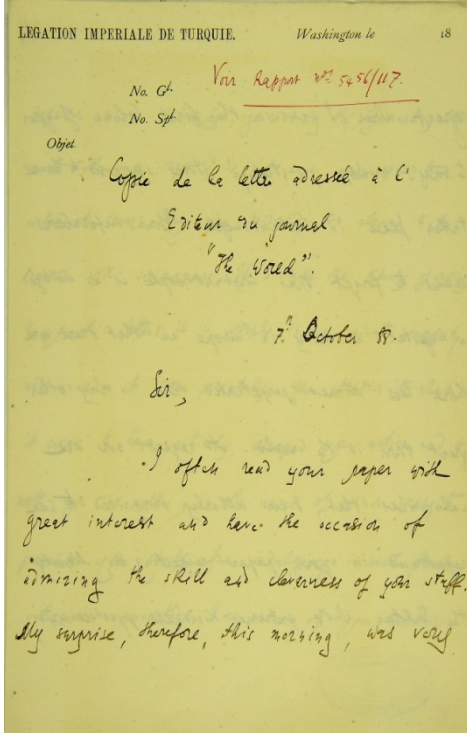 LEGATION IMPERIALE DE TURQUIE. Washington le 18
Voir Rapport Nos 5456/117.
No. Gl.
No. Spl.
Objet
Copie de la lettre adressée à l'
Editeur du journal
"The World".
7th October 88.
Sir,
I often read your paper with
great interest and have the occasion of
admizing the skill and cleverness of your stuff.
My surprise, therefore, this morning, was very